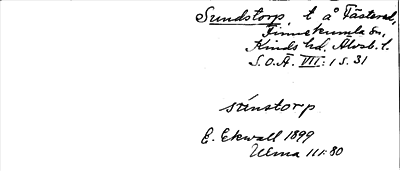 Sundstorp, t å Fästered,
Finnekumla sn,
Kinds hd, Älvsb. l.
S.O.Ä. VII:1 s. 31
súnstorp
E. Ekwall 1899
ULma 111:80